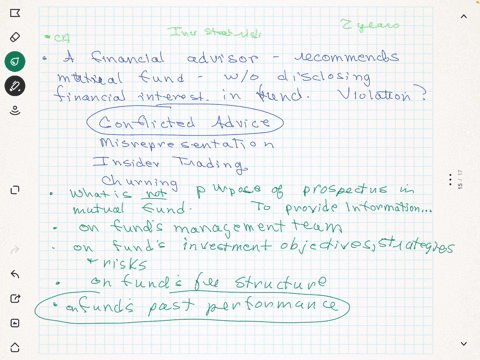 2 years
• CQ
• A financial advisor - recommends
mutual fund - w/o disclosing
financial interest in fund. Violation?
Conflicted Advice
Misrepresentation
Insider Trading
Churning
• What is not purpose of prospectus in
mutual fund. To provide information...
• on fund's management team
• on fund's investment objectives, strategies
+ risks
• on fund's fee structure
• on fund's past performance